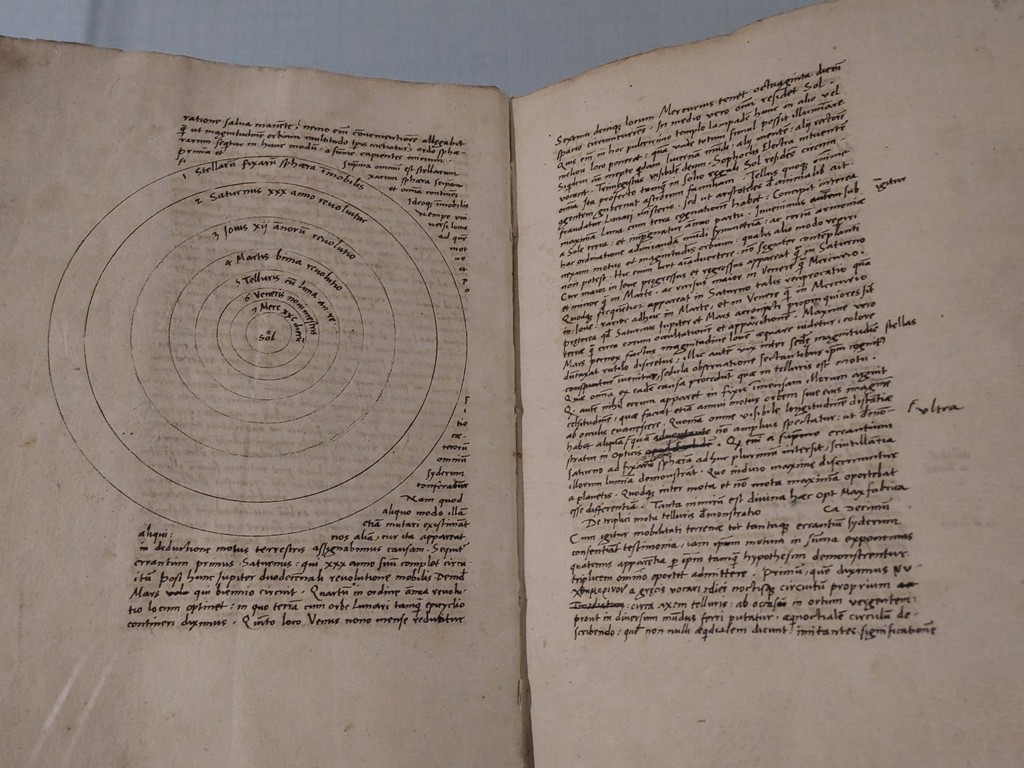 ratione salva manente: nemo em̃ convenientiorē allegabit
q̃ ut magnitudinē orbium multitudo tp̃is metiatur: ordo sphæ-
rarum sequitur in hunc modū: a summo capientes initium.
prima et summa omniū est stellarum
fixarum sphæra seipsam
et omnia continēs
Ideoq̃ immobilis
nempe uni-
versi locus
ad quē
mot
us
et
po
1 Stellarū fixarū sphæra immobilis
2 Saturnus xxx anno revolvitur
3 Iovis xij annorū revolutio
4 Martis bima revolutio
5 Telluris cū luna an. re.
6 Veneris nonimestris
7 Merc xxc dierū
Sol
sitio
cæ-
terorū
omniū
syderum
conferatur
Nam quod
aliquo modo illā
etiā mutari existimāt
aliqui: nos aliā, cur ita appareat
in deductione motus terrestris assignabimus causam. Sequitur
errantium primus Saturnus: qui xxx anno suū complet circu
itū Post hunc Iupiter duodecennali revolutione mobilis Deinde
Mars qui biennio circuit. Quartū in ordine annua revolu-
tio locum optinet: in quo terrā cum orbe lunari tanq̃ epicyclio
contineri diximus. Quinto loco Venus nono mense reducitur
Sextum deniq̃ locum Mercurius tenet octuaginta dierū
spacio circumcurrēs. In medio vero omniū residet Sol.
Quis em̃ in hoc pulcerrimo templo lampadē hanc in alio vel
meliori loco poneret: quā unde totum simul possit illuminare.
Siquidem nō inepte quidam lucernā mundi: alij mentē: alij rectorē
vocant. Trimegistus visibilē deum. Sophoclis Electra intuentē
omnia. Ita profecto tanq̃ in solio regali Sol residēs circum
agentem gubernat astrorum familiam. Tellus quoq̃ minime
fraudatur lunari ministerio. Sed ut aristoteles d̃ animalibus ait
maximā luna cum terra cognationē habet. Concipit interea
a Sole terra: et impregnatur annuo partu. Invenimus igitur sub
hac ordinatione admirandā mūdi symmetriā: ac certū armoniæ
nexum motus et magnitudinis orbium: qualis alio modo reperiri
non potest. Hic enim licet animadvertere, nō segniter contemplanti
Cur maior in Iove progressus et regressus appareat q̃ in Saturno
et minor q̃ in Marte: ac rursus maior in Venere q̃ in Mercurio.
Quodq̃ frequētior appareat in Saturno talis reciprocatio quā
in Iove: rarior adhuc in Marte, et in Venere q̃ in Mercurio
præterea qđ Saturnus Iupiter et Mars acronycti propinquiores sint
terræ q̃ circa eorum occultationē et apparitionē. Maxime vero
Mars pernox factus magnitudine Iovē æquare videtur: colore
dūtaxat rutilo discretus: illic autē vix inter sedæ magnitudinis stellas
invenitur, sedula observatione sectantibus ipm̄ cognitus
Quæ omnia ex eadē causa procedūt quæ in telluris est motu.
Qđ autē nihil eorum apparet in fixis immensam illorum arguit
celsitudinē: quæ faciat etiā annui motus orbem sive eius imaginē
ab oculis evanescere. Quoniā omne visibile longitudinē distātiæ
habet aliquā: ultra quā no amplius spectatur: ut demō-
stratur in Opticis Qđ em̃ a supremo errantium
Saturno ad fixarū sphærā adhuc plurimū intersit, scintillātia
illorum lumina demonstrāt. Quo indicio maxime discernūntur
a planetis. Quodq̃ inter mota et nō mota maximā oportebat
esse differentiā. Tanta nimirū est divina hæc Opt Max fabrica
De triplici motu telluris d̃monstratio Ca Decimū
Cum igitur mobilitati terrenæ tot tantaq̃ errantiū syderum
consentiāt testimonia, iam ipsum motum in summa exponemus
quatenus apparentia p̃ ipm̄ tanq̃ hypothesim demonstrentur
triplicem omnino oportet admittere. Primū, quē diximus
a græcis vocari, diei noctisq̃ circuitū proprium
circa axem telluris: ab occasu in ortum vergentem:
prout in diversum mūdus ferri putatur. æquinoctialē circulū de-
scribendo: quē non nulli æquidialem dicunt: imitantes significationē
igitur
ultra